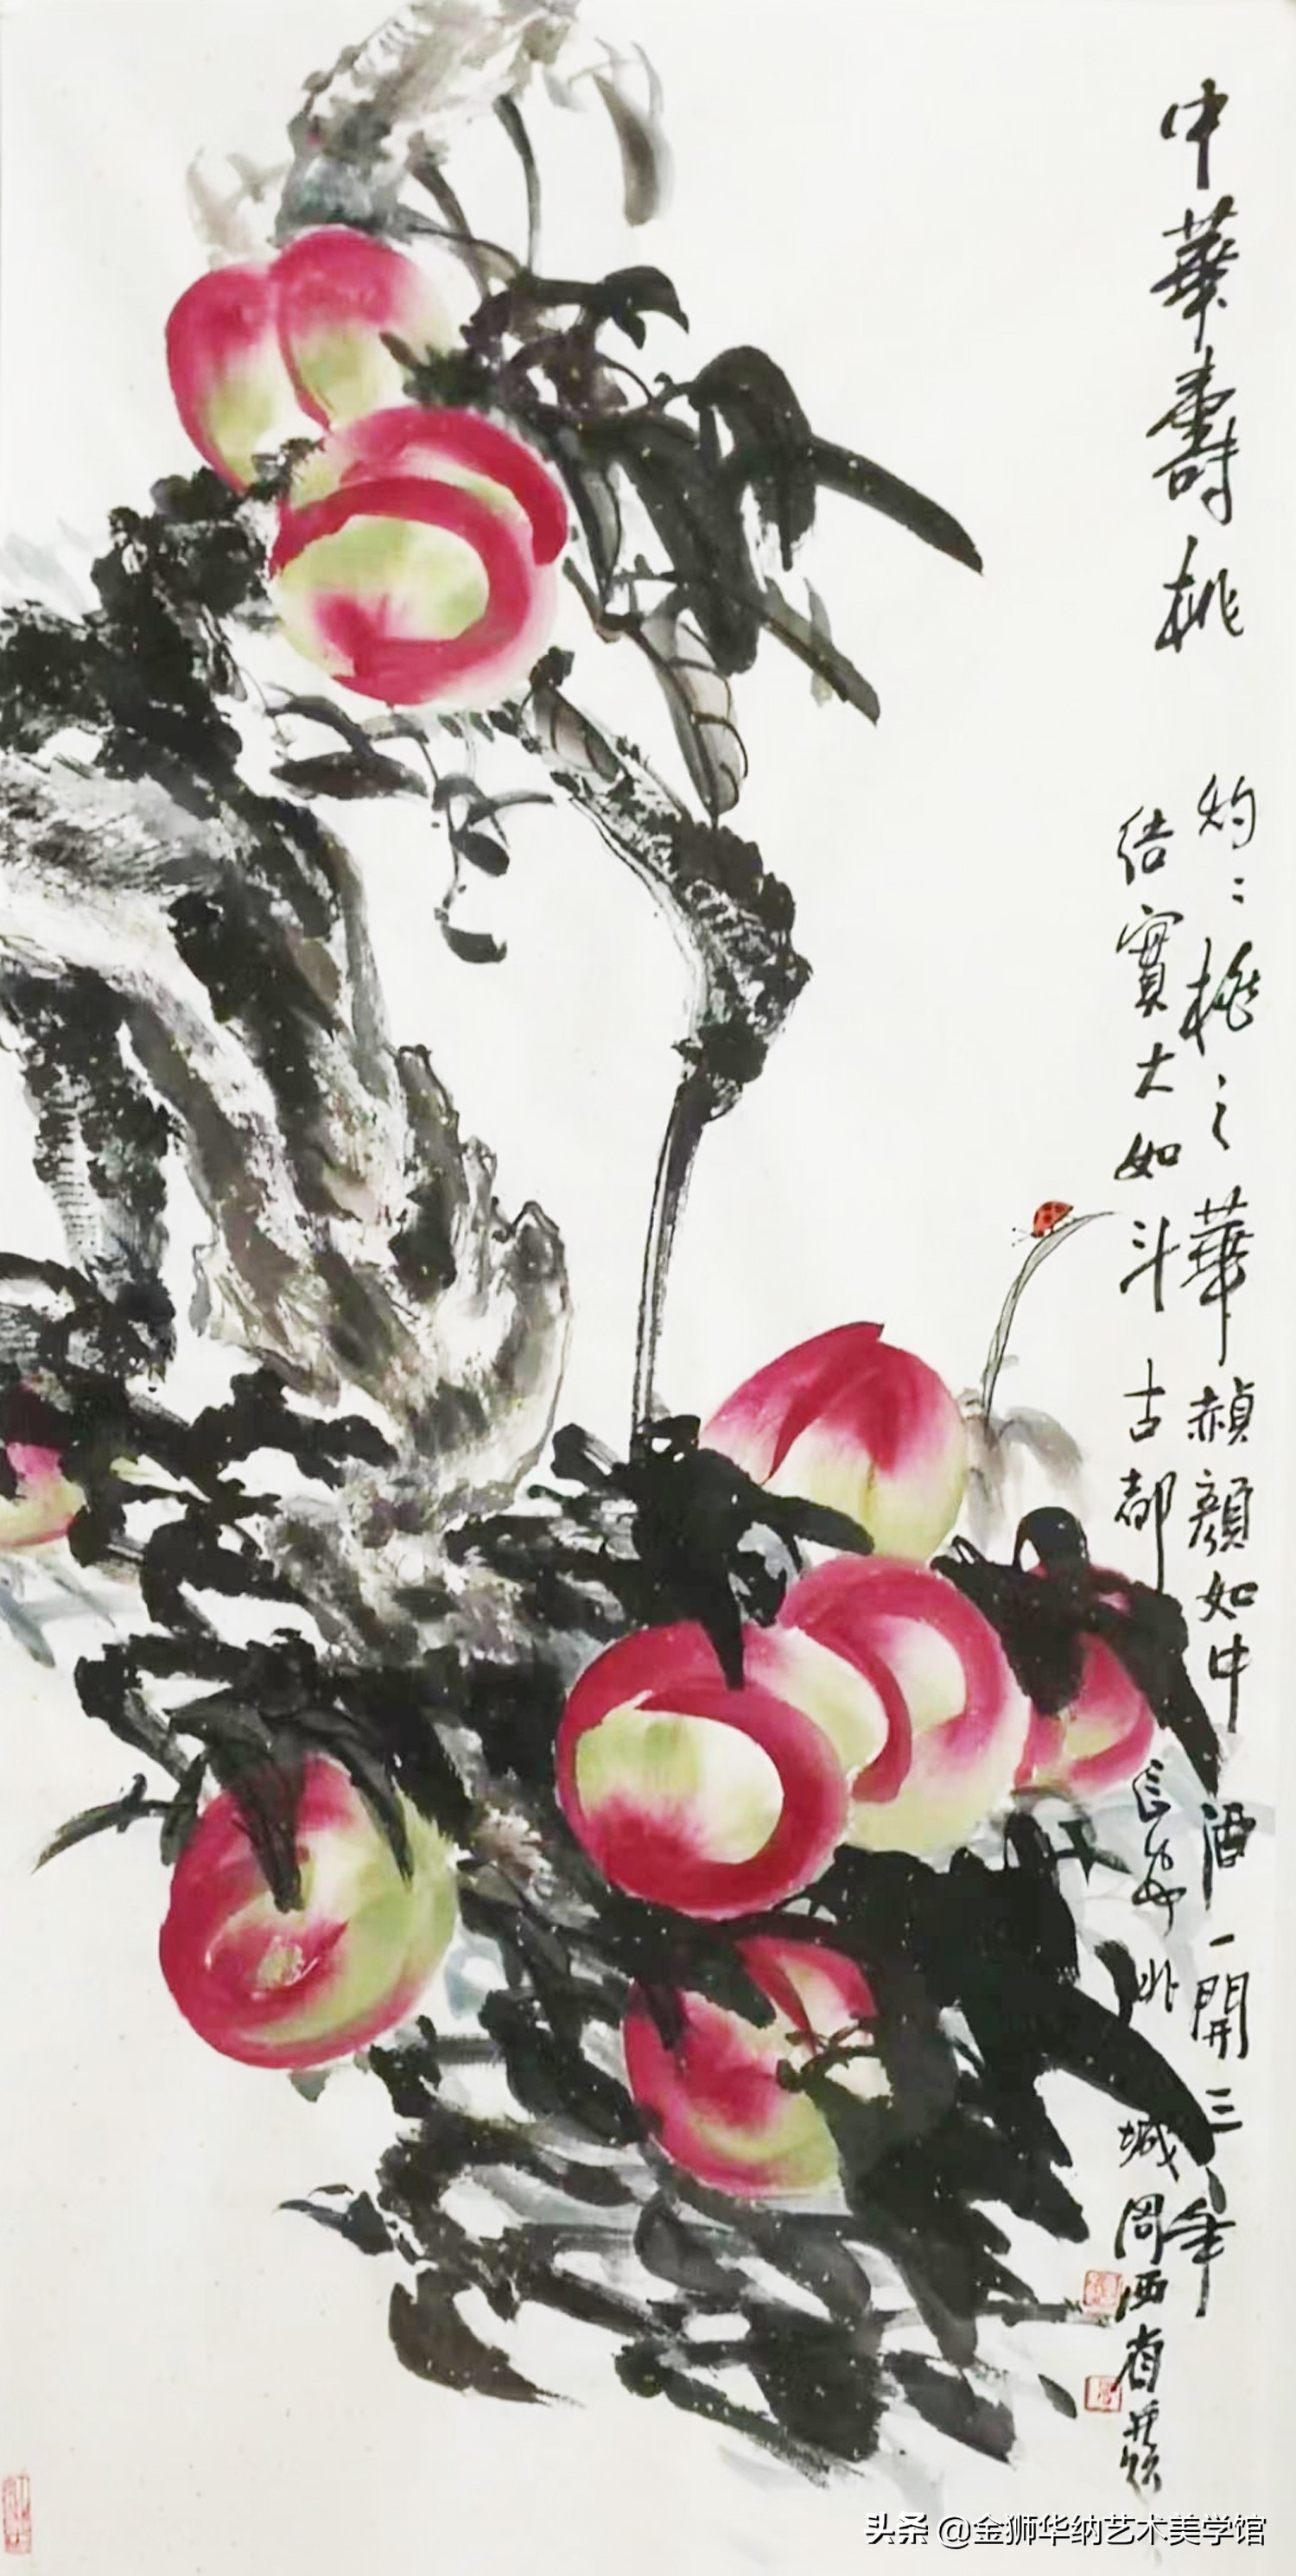 中華壽桃
灼〻桃之華赬顏如中酒一開三年
結實大如斗古都長安北城周西省
头条 @金狮华纳艺术美学馆